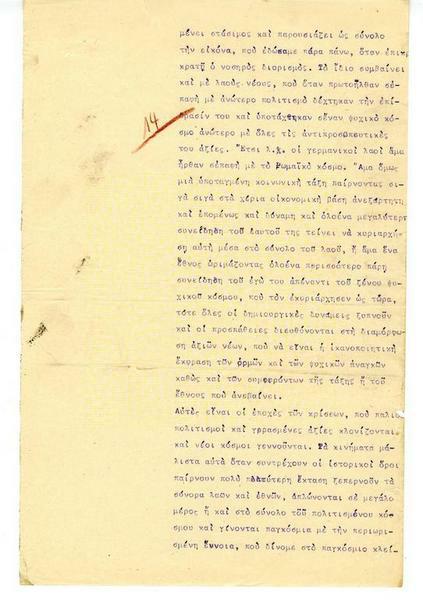 μένει στάσιμος καὶ παρουσιάζει ὡς σύνολο
τὴν εἰκόνα, ποὺ ἐδώσαμε πάρα πάνω, ὅταν ἐπικ
κρατῇ ὁ νοσηρὸς διορισμός. Τὸ ἴδιο συμβαίνει
καὶ μὲ λαοὺς νέους, ποὺ ὅταν πρωτοῆλθαν σὲ
παφὴ μὲ ἀνώτερο πολιτισμὸ δέχτηκαν τὴν ἐπί
δρασίν του καὶ ὑποτάχτηκαν σἕναν ψυχικὸ κόσ
μο ἀνώτερο μὲ ὅλες τὶς ἀντιπροσωπευτικὲς
14
του ἀξίες. Ἔτσι λ.χ. οἱ γερμανικοὶ λαοὶ ἅμα
ἦρθαν σὲπαφὴ μὲ τὸ Ρωμαϊκὸ κόσμο. Ἅμα ὅμως
μιὰ ὑποταγμένη κοινωνικὴ τάξη παίρνοντας σι
γὰ σιγὰ στὰ χέρια οἰκονομικὴ βάση ἀνεξάρτητη
καὶ ἑπομένως καὶ δύναμη καὶ ὁλοένα μεγαλύτερη
συνείδηση τοῦ ἑαυτοῦ της τείνει νὰ κυριαρχή
ση αὐτὴ μέσα στὸ σύνολο τοῦ λαοῦ, ἢ ἅμα ἕνα
ἔθνος ὡριμάζοντας ὁλοένα περισσότερο πάρη
συνείδηση τοῦ ἐγώ του ἀπέναντι τοῦ ξένου ψυ
χικοῦ κόσμου, ποὺ τὸν ἐκυριάρχησεν ὡς τώρα,
τότε ὅλες οἱ δημιουργικὲς δυνάμεις ξυπνοῦν
καὶ οἱ προσπάθειες διευθύνονται στὴ διαμόρφω
ση ἀξιῶν νέων, ποὺ νὰ εἶναι ἡ ἱκανοποιητικὴ
ἔκφραση τῶν ὁρμῶν καὶ τῶν ψυχικῶν ἀναγκῶν
καθὼς καὶ τῶν συμφερόντων τῆς τάξης ἢ τοῦ
ἔθνους ποὺ ἀνεβαίνει.
Αὐτὲς εἶναι οἱ ἐποχὲς τῶν κρίσεων, ποὺ παλιο
πολιτισμοὶ καὶ γερασμένες ἀξίες κλονίζονται
καὶ νέοι κόσμοι γεννοῦνται. Τὰ κινήματα μά-
λιστα αὐτὰ ὅταν συντρέχουν οἱ ἱστορικοὶ ὅροι
παίρνουν πολὺ πλατύτερη ἔκταση ξεπερνοῦν τὰ
σύνορα λαῶν καὶ ἐθνῶν, ἁπλώνονται σὲ μεγάλο
μέρος ἢ καὶ στὸ σύνολο τοῦ πολιτισμένου κό-
σμου καὶ γίνονται παγκόσμια μὲ τὴν περιωρι-
σμένη ἔννοια, ποὺ δίνομε στὸ παγκόσμιο κλεί-